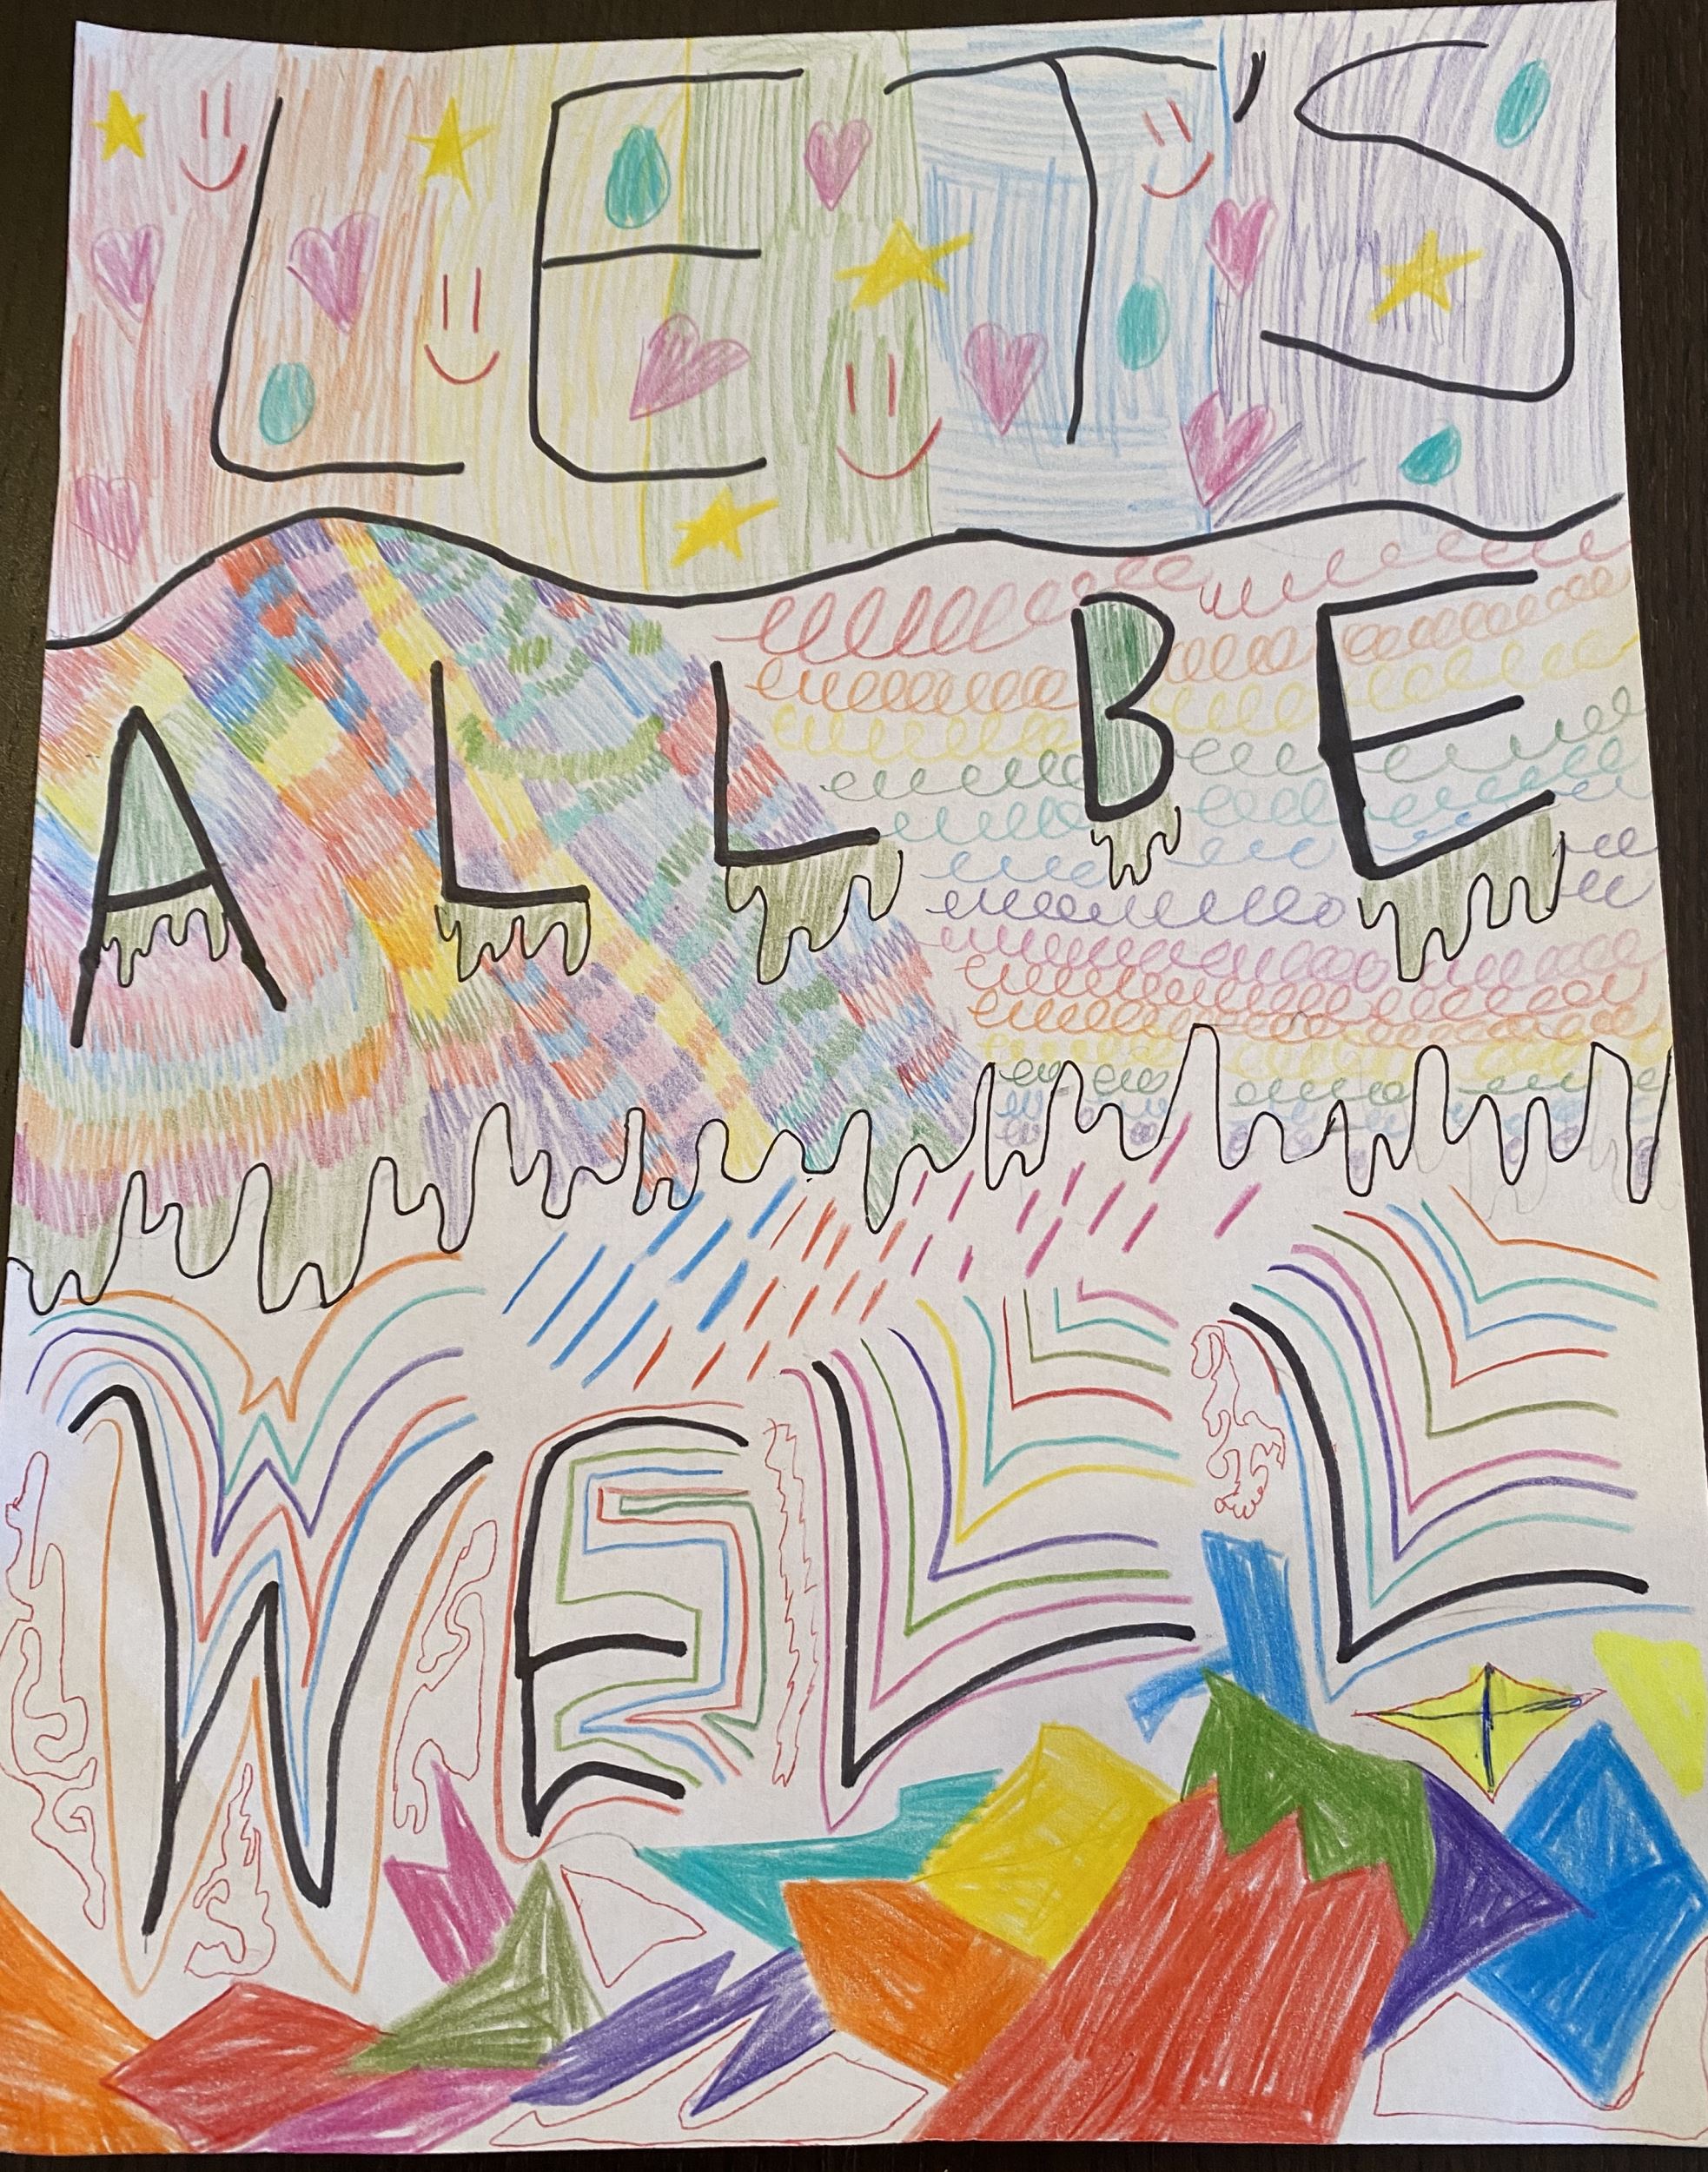 LET'S
ALL BE
WELL